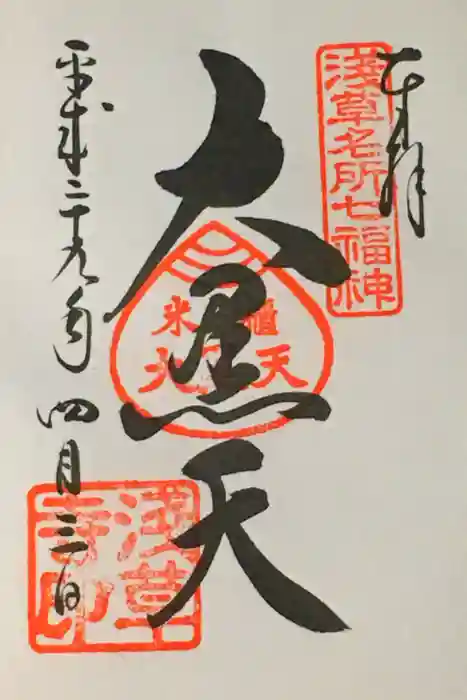 奉拝
淺草名所七福神
大黒天
米櫃
大黒天
平成二十九年
四月三日
淺草
寺印